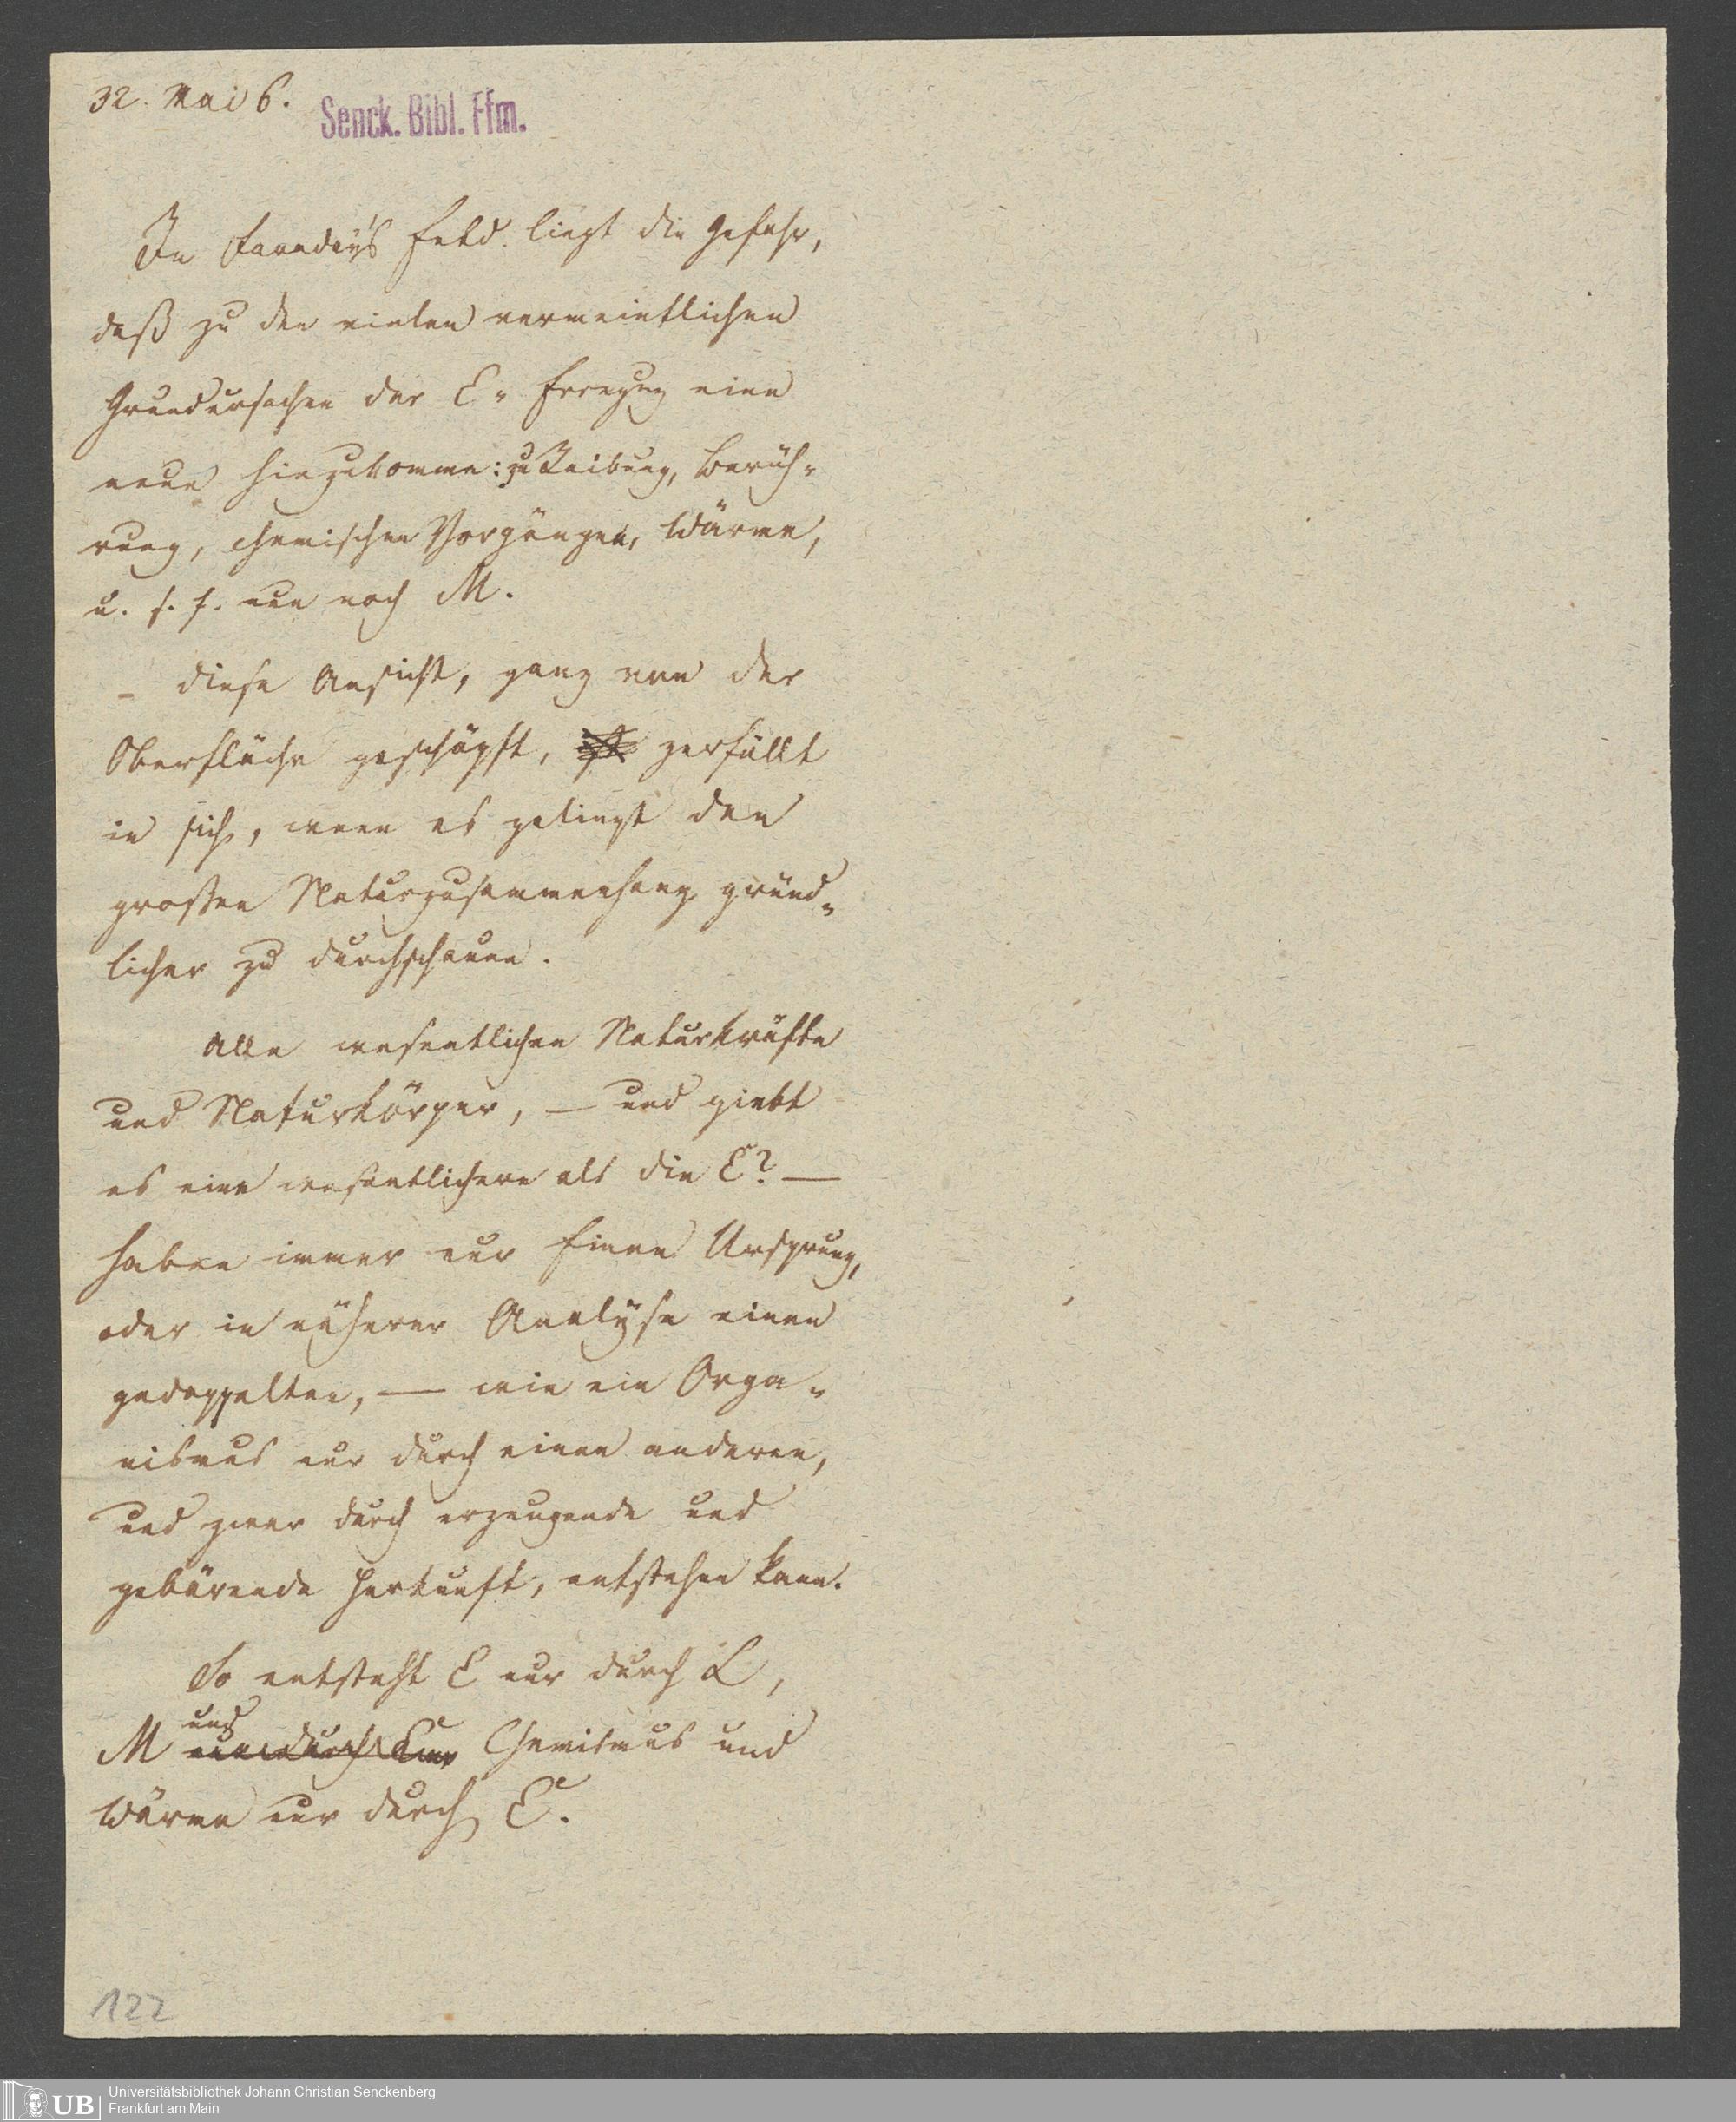 32. Mai 6.
Senck. Bibl. Ffm.
In Faraday's Entd. liegt die Gefahr,
daß zu den vielen vermeintlichen
Grundursachen der E- Erregung eine
neue hinzukomme: zu Reibung, Berüh-
rung, chemischen Vorgängen, Wärme,
u. s. f. nun noch M.
- Diese Ansicht, ganz von der
Oberfläche geschöpft, ist zerfällt
in sich, wenn es gelingt den
großen Naturzusammenhang gründ-
licher zu durchschauen.
Alle wesentlichen Naturkräfte
und Naturkörper, — und giebt
es eine wesentlichere als die E? —
haben immer nur Einen Ursprung,
oder in näherer Analyse einen
gedoppelten, — wie ein Orga-
nismus nur durch einen anderen,
und zwar durch erzeugende und
gebärende Herkunft, entstehen kann.
So entsteht E nur durch L,
und
M nur durch Chemismus und
Wärme nur durch E.
122
UB
Universitätsbibliothek Johann Christian Senckenberg
Frankfurt am Main